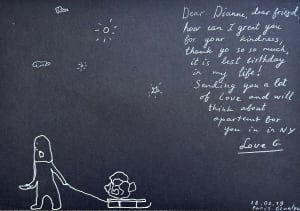 Dear Dianne, dear friend
how can I great you
for your kindness,
thank go so so much,
it is best birthday
in my life!
Sending you a lot
of love and will
think about
apartment for
you in in NY
Love G
18.02.19
Paris